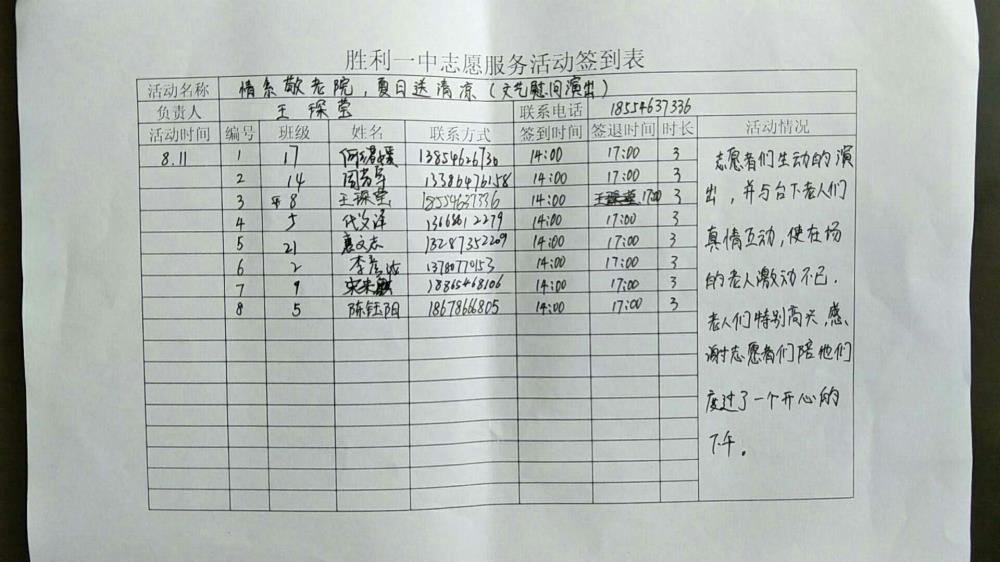 胜利一中志愿服务活动签到表
活动名称 情系敬老院，夏日送清凉（文艺慰问演出）
负责人 王琛莹 联系电话 18554637336
活动时间 编号 班级 姓名 联系方式 签到时间 签退时间 时长 活动情况
8.11 1 17 13854626736 14:00 17:00 3
2 14 13386476158 14:00 17:00 3
3 8 王琛莹 18554637336 14:00 17:00 3
4 5 代汶泽 13668612279 14:00 17:00 3
5 21 唐文志 13287352209 14:00 17:00 3
6 2 14:00 17:00 3
7 9 18865468106 14:00 17:00 3
8 5 陈钰阳 18678666805 14:00 17:00 3
志愿者们生动的演
出，并与台下老人们
真情互动，使在场
的老人激动不已．
老人们特别高兴，感
谢志愿者们陪他们
度过了一个开心的
下午。